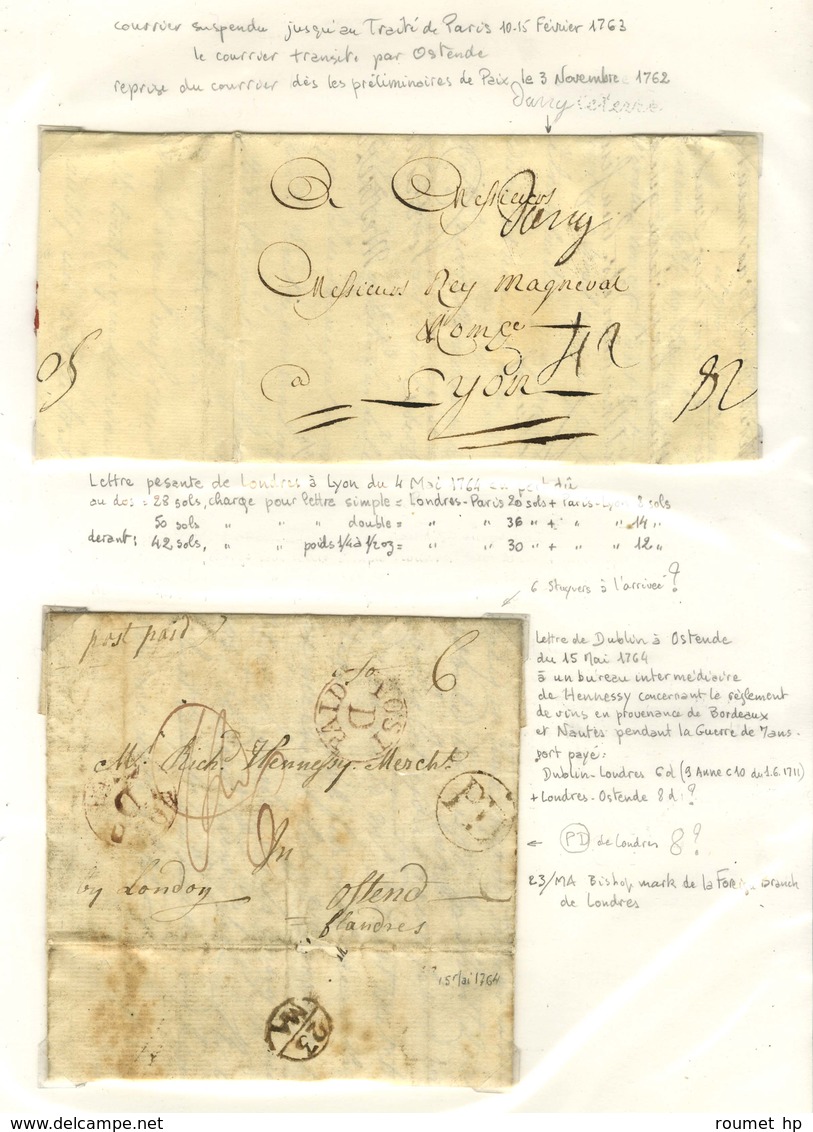 courrier suspendu jusqu'au Traité de Paris 10-15 Février 1763
le courrier transite par Ostende
reprise du courrier dès les préliminaires de Paix le 3 Novembre 1762
A Messieurs
Messieurs Rey Magneval
& Compe
42
a Lyon
Lettre pesante de Londres à Lyon du 4 Mai 1764 en port dû
au dos = 28 sols, charge pour lettre simple = Londres-Paris 20 sols + Paris-Lyon 8 sols
50 sols " " " double = " " 36 " + " " 14 "
devant : 42 sols, " " poids 1/4 à 1/2 oz = " " 30 " + " " 12 "
6 Stuyvers à l'arrivée ?
post paid
6
POST PAID
D
Mr. Richd. Hennessy Mercht.
PD
In
by London
Ostend
flandres
15 Mai 1764
23
MA
Lettre de Dublin à Ostende
du 15 Mai 1764
à un bureau intermédiaire
de Hennessy concernant le règlement
de vins en provenance de Bordeaux
et Nantes pendant la Guerre de 7 ans-
port payé :
Dublin-Londres 6d (9 Anne C10 du 1.6.1711)
+ Londres-Ostende 8d ?
← PD de Londres 8?
23/MA Bishop mark de la Foreign Branch
de Londres
www.delcampe.net
roumet hp